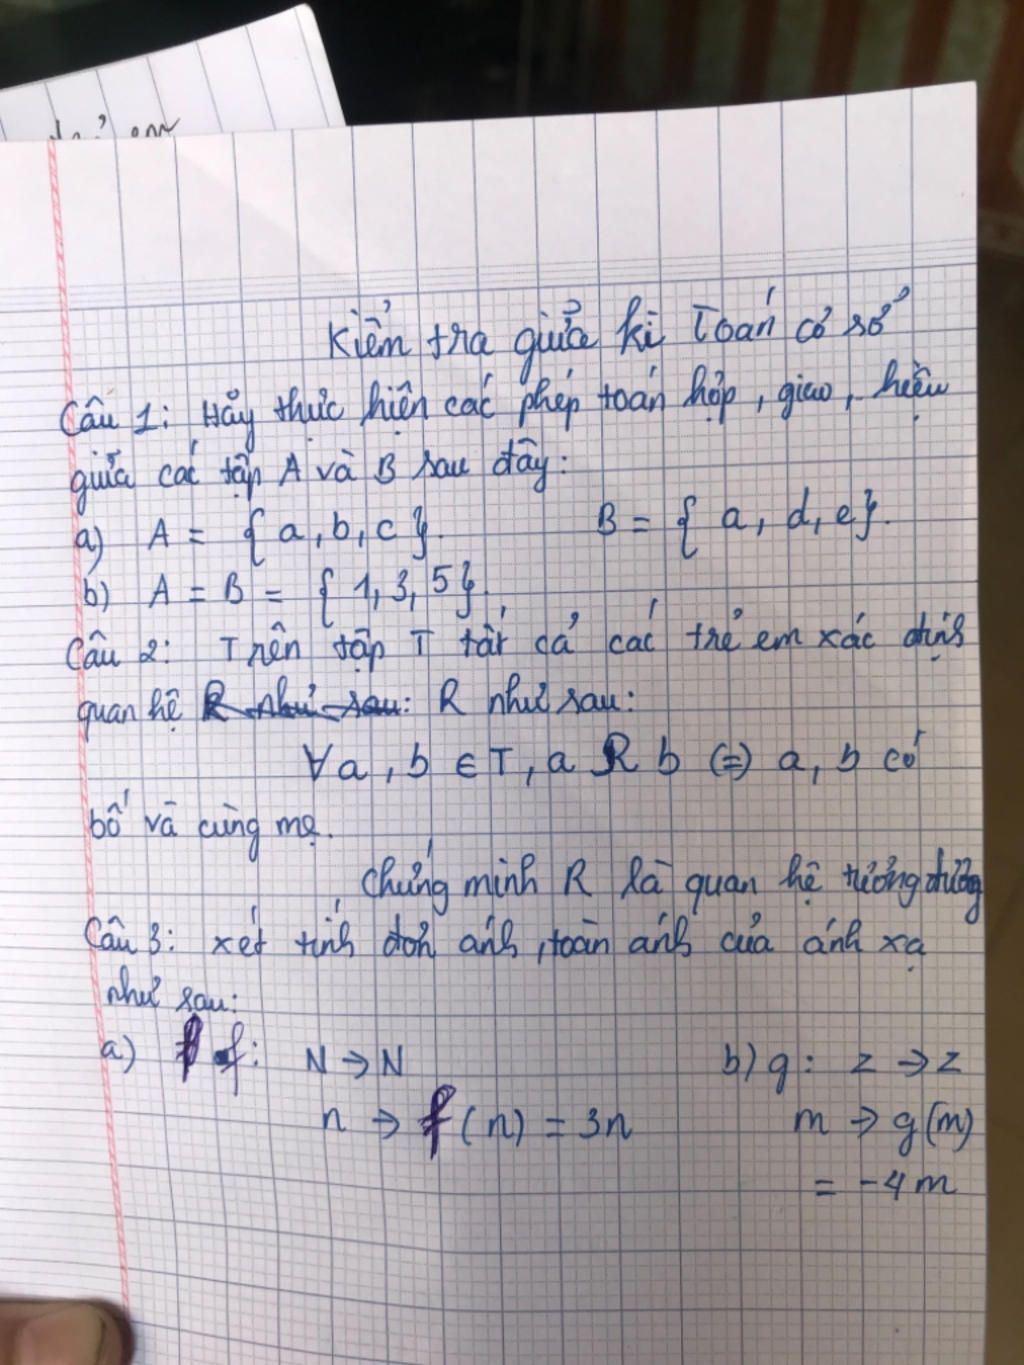 Kiểm tra giữa kì Toán cơ sở
Câu 1: Hãy thực hiện các phép toán hợp, giao, hiệu
giữa các tập A và B sau đây:
a) A = { a, b, c }. B = { a, d, e }.
b) A = B = { 1, 3, 5 }.
Câu 2: Trên tập T tất cả các trẻ em xác định
quan hệ R như sau: R như sau:
∀a, b ∈ T, a R b (=) a, b có
bố và cùng mẹ.
Chứng minh R là quan hệ tương đương
Câu 3: xét tính đơn ánh, toàn ánh của ánh xạ
như sau:
a) f: N → N b) g: Z → Z
n → f(n) = 3n m → g(m)
= -4m